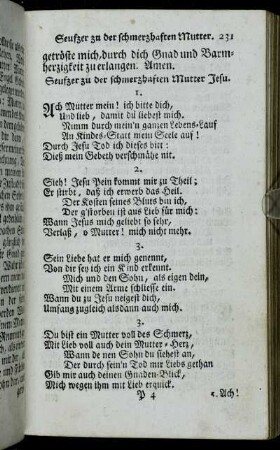 Seufzer zu der schmerzhaften Mutter. 231
getröste mich, durch dich Gnad und Barm-
herzigkeit zu erlangen. Amen.
Seufzer zu der schmerzhaften Mutter Jesu.
1.
Ach Mutter mein! ich bitte dich,
Und lieb, damit du liebest mich.
Nimm durch mein'n gantzen Lebens-Lauf
An Kindes-Statt mein Seele auf!
Durch Jesu Tod ich dieses bitt:
Dieß mein Gebeth verschmähe nit.
2.
Sieh! Jesu Pein kommt mir zu Theil;
Er stirbt, daß ich erwerb das Heil.
Der Kosten seines Bluts bin ich,
Der g'storben ist aus Lieb für mich:
Wann Jesus mich geliebt so sehr,
Verlaß, o Mutter! mich nicht mehr.
3.
Sein Liebe hat er mich genennt,
Von dir sey ich ein Kind erkennt.
Mich und den Sohn, als eigen dein,
Mit einem Arme schliesse ein.
Wann du zu Jesu neigest dich,
Umfang zugleich alsdann auch mich.
3.
Du bist ein Mutter voll des Schmerz,
Mit Lieb voll auch dein Mutter-Herz,
Wann de nen Sohn du stehest an,
Der durch sein'n Tod mir Liebs gethan
Gib mir auch deinen Gnaden-Blick,
Mich wegen ihm mit Lieb erquick.
P 4
5. Ach!